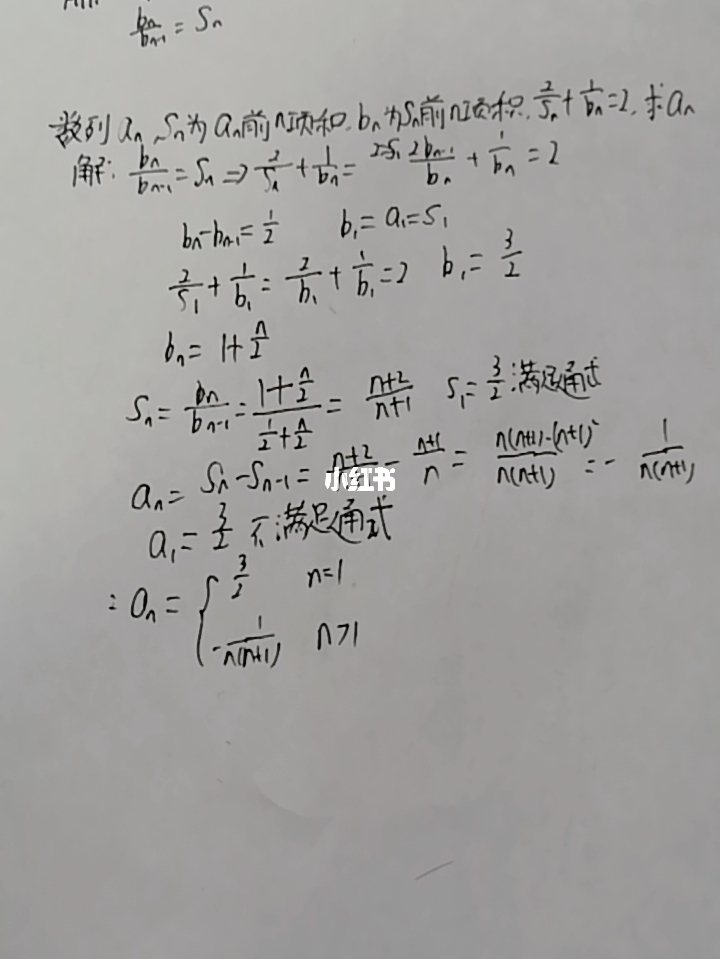 bn/bn-1 = Sn
数列an, Sn为an前n项和, bn为Sn前n项积, 2/Sn + 1/bn = 2, 求an
解: bn/bn-1 = Sn ⇒ 2/Sn + 1/bn = 2bn-1/bn + 1/bn = 2
bn - bn-1 = 1/2 b1 = a1 = S1
2/S1 + 1/b1 = 2/b1 + 1/b1 = 2 b1 = 3/2
bn = 1 + n/2
Sn = bn/bn-1 = (1 + n/2)/(1/2 + n/2) = (n+2)/(n+1) S1 = 3/2 满足通式
an = Sn - Sn-1 = - (n+1)/n = = - 1/(n(n+1))
小红书
a1 = 3/2 不满足通式
: an = { 3/2 n=1
-1/(n(n+1)) n>1